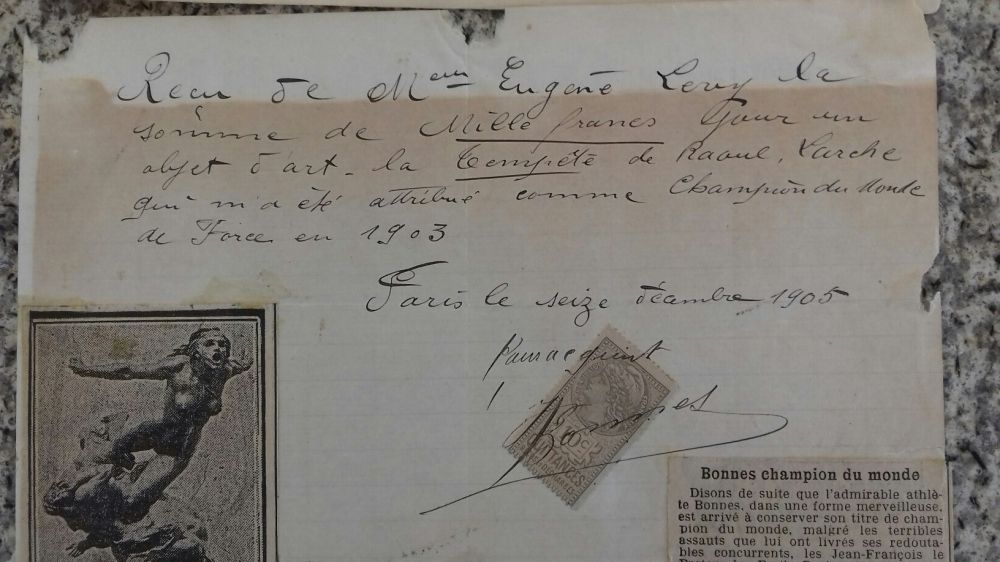 Recu de Meur Eugène Levy la
somme de Mille francs Pour un
objet d'art - la Tempéte de Raoul, Larche
qui m'a été attribué comme Champion du Monde
de Force en 1903
Paris le seize décembre 1905
Pour acquit
Bonnes
10 c.
QUITTANCES
Bonnes champion du monde
Disons de suite que l'admirable athlè-
te Bonnes, dans une forme merveilleuse,
est arrivé à conserver son titre de cham-
pion du monde, malgré les terribles
assauts que lui ont livrés ses redouta-
bles concurrents, les Jean-François le